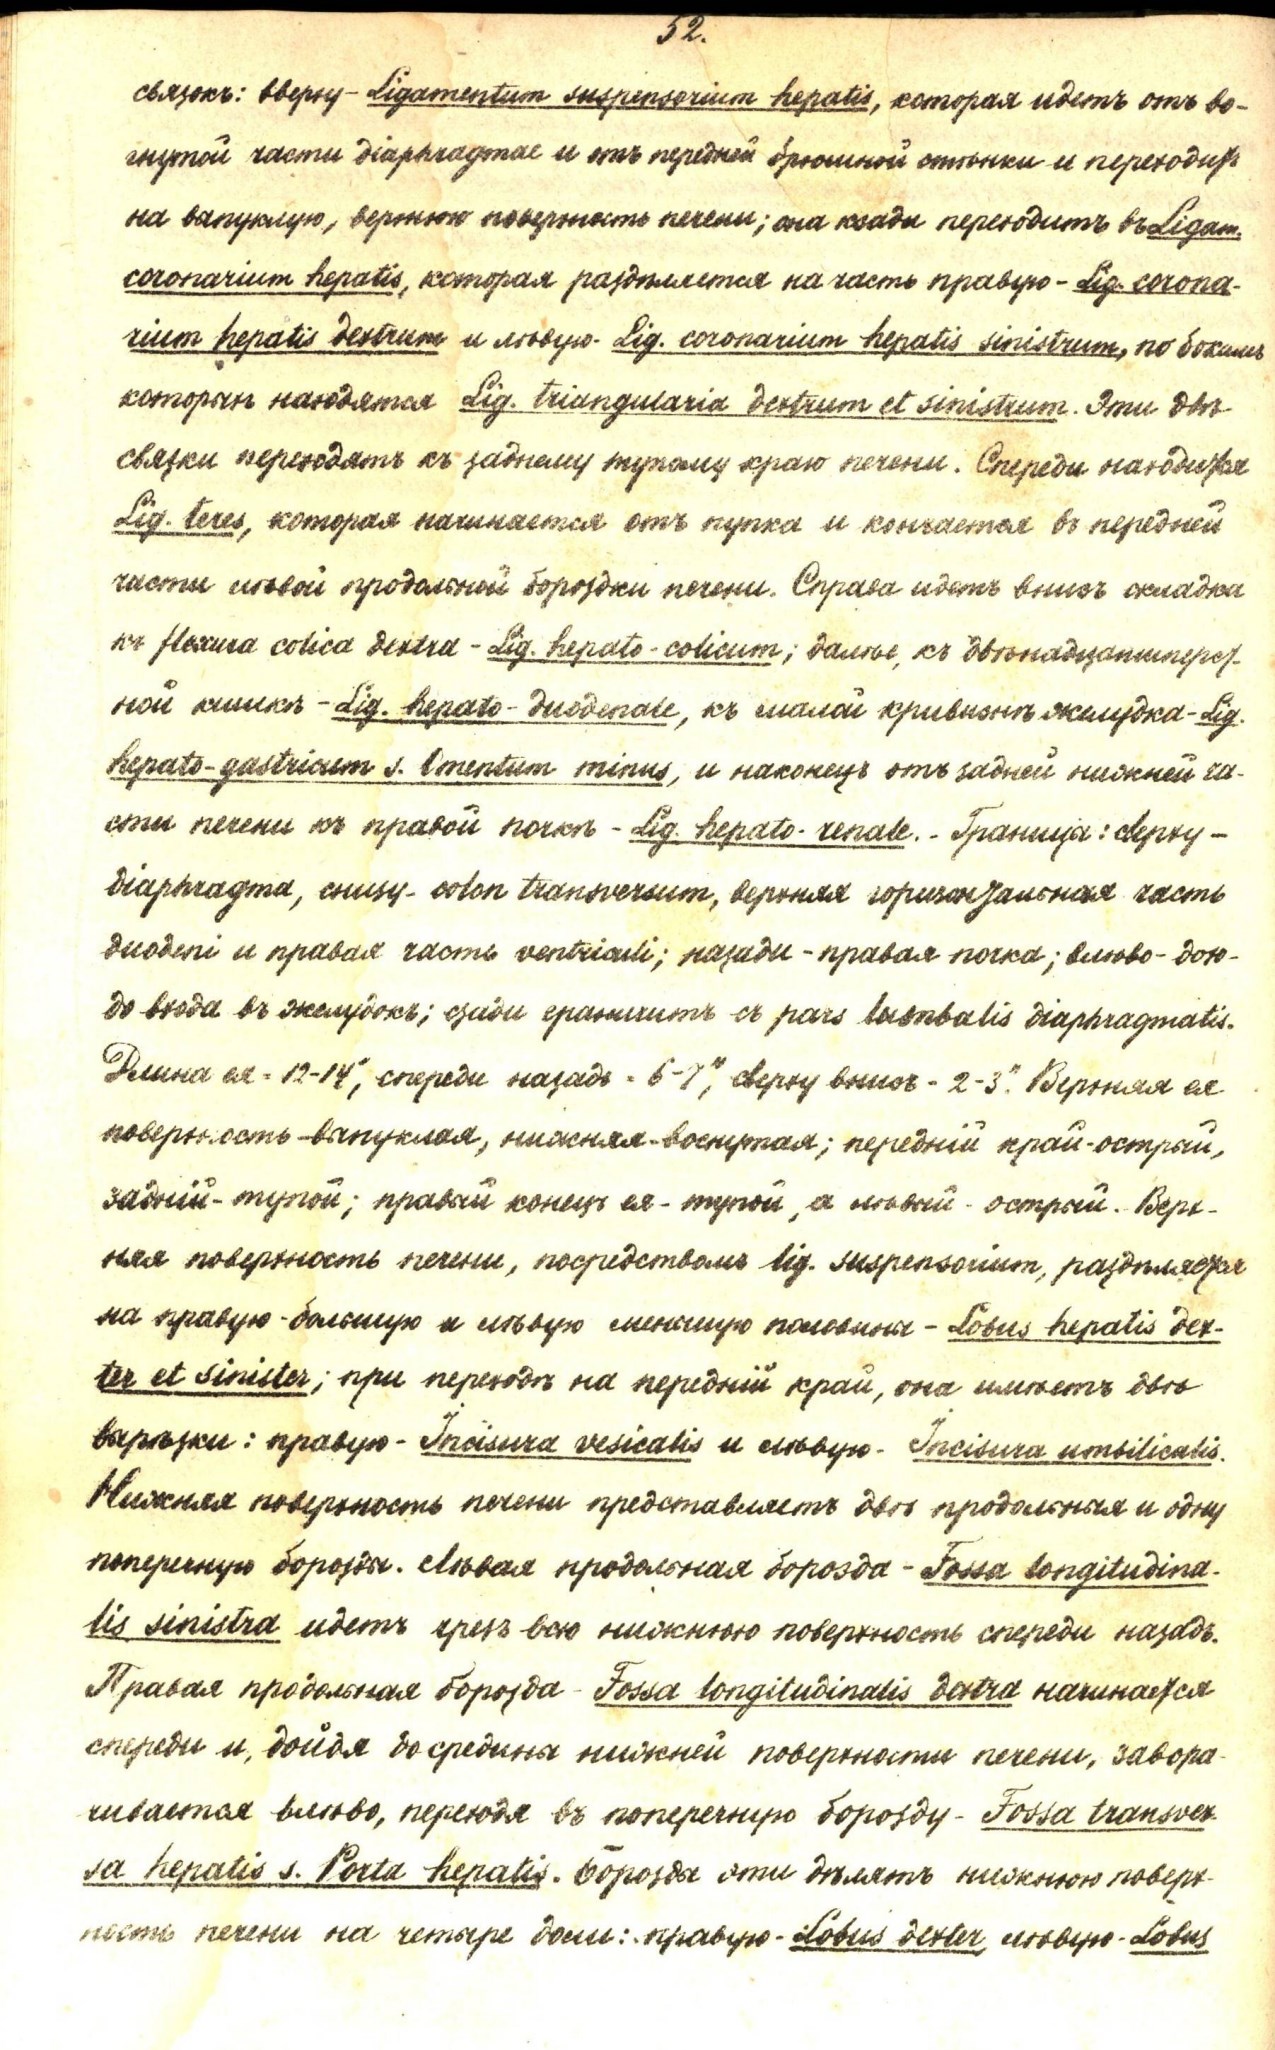 52.
связокъ: вверху - Ligamentum suspensorium hepatis, которая идетъ отъ во-
гнутой части diaphragmae и отъ передней брюшной стѣнки и переходитъ
на выпуклую, верхнюю поверхность печени; она кзади переходитъ въ Ligam.
coronarium hepatis, которая раздѣляется на часть правую - Lig. corona-
rium hepatis dextrum и лѣвую - Lig. coronarium hepatis sinistrum, по бокамъ
которыхъ находятся Lig. triangularia dextrum et sinistrum. Эти двѣ
связки переходятъ къ заднему тупому краю печени. Спереди находится
Lig. teres, которая начинается отъ пупка и кончается въ передней
части лѣвой продольной бороздки печени. Справа идетъ внизъ складка
къ flexura colica dextra - Lig. hepato-colicum; далѣе, къ двѣнадцатиперст-
ной кишкѣ - Lig. hepato-duodenale, къ малой кривизнѣ желудка - Lig.
hepato-gastricum s. Omentum minus, и наконецъ отъ задней нижней ча-
сти печени къ правой почкѣ - Lig. hepato-renale. - Границы: сверху -
diaphragma, снизу - colon transversum, верхняя горизонтальная часть
duodeni и правая часть ventriculi; назади - правая почка; влѣво - дох-
до входа въ желудокъ; сзади граничитъ съ pars lumbalis diaphragmatis.
Длина ея - 12-14", спереди назадъ - 6-7", сверху внизъ - 2-3". Верхняя ея
поверхность - выпуклая, нижняя - вогнутая; передній край - острый,
задній - тупой; правый конецъ ея - тупой, а лѣвый - острый. Верх-
няя поверхность печени, посредствомъ lig. suspensorium, раздѣляется
на правую - большую и лѣвую меньшую половины - Lobus hepatis dex-
ter et sinister; при переходѣ на передній край, она имѣетъ двѣ
вырѣзки: правую - Incisura vesicalis и лѣвую - Incisura umbilicalis.
Нижняя поверхность печени представляетъ двѣ продольныя и одну
поперечную борозды. Лѣвая продольная борозда - Fossa longitudina-
lis sinistra идетъ чрезъ всю нижнюю поверхность спереди назадъ.
Правая продольная борозда - Fossa longitudinalis dextra начинается
спереди и, дойдя до средины нижней поверхности печени, завора-
чивается влѣво, переходя въ поперечную борозду - Fossa transver-
sa hepatis s. Porta hepatis. Борозды эти дѣлятъ нижнюю поверх-
ность печени на четыре доли: правую - Lobus dexter, лѣвую - Lobus